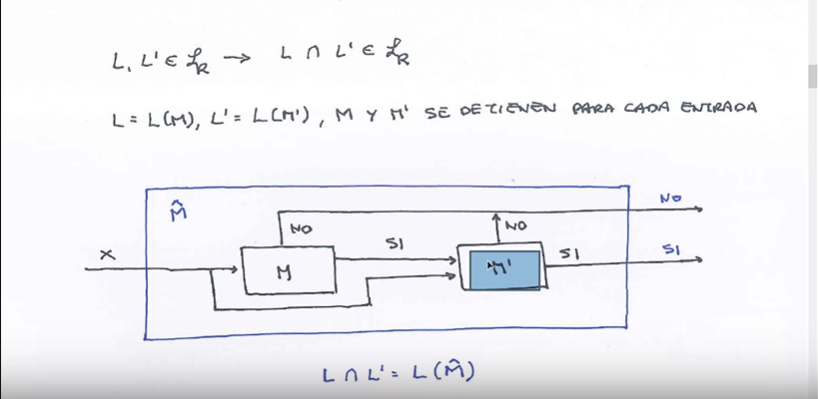 L, L' ∈ ℒR → L ∩ L' ∈ ℒR
L = L(M), L' = L(M'), M Y M' SE DETIENEN PARA CADA ENTRADA
M̂
NO
NO
NO
X
SI
SI
SI
M
M'
L ∩ L' = L(M̂)